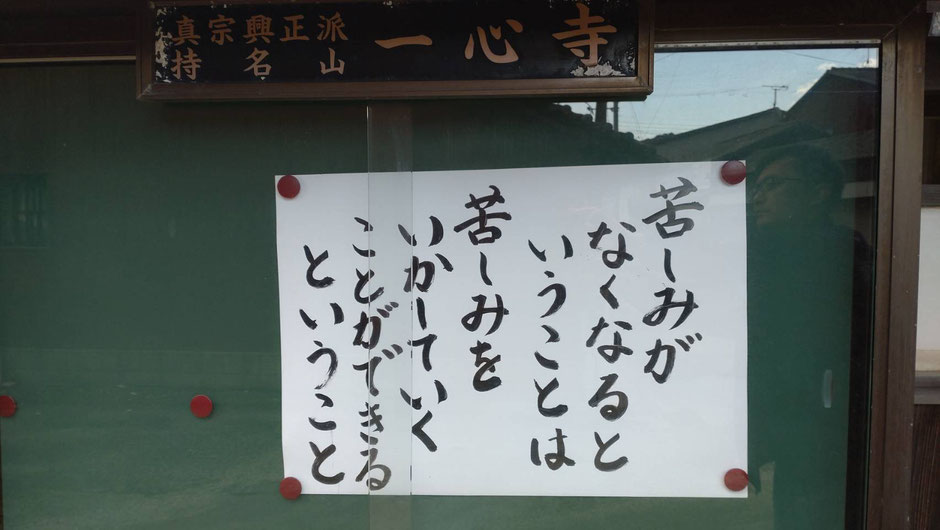 真宗興正派
持名山
一心寺
苦しみが
なくなると
いうことは
苦しみを
いかしていく
ことができる
ということ